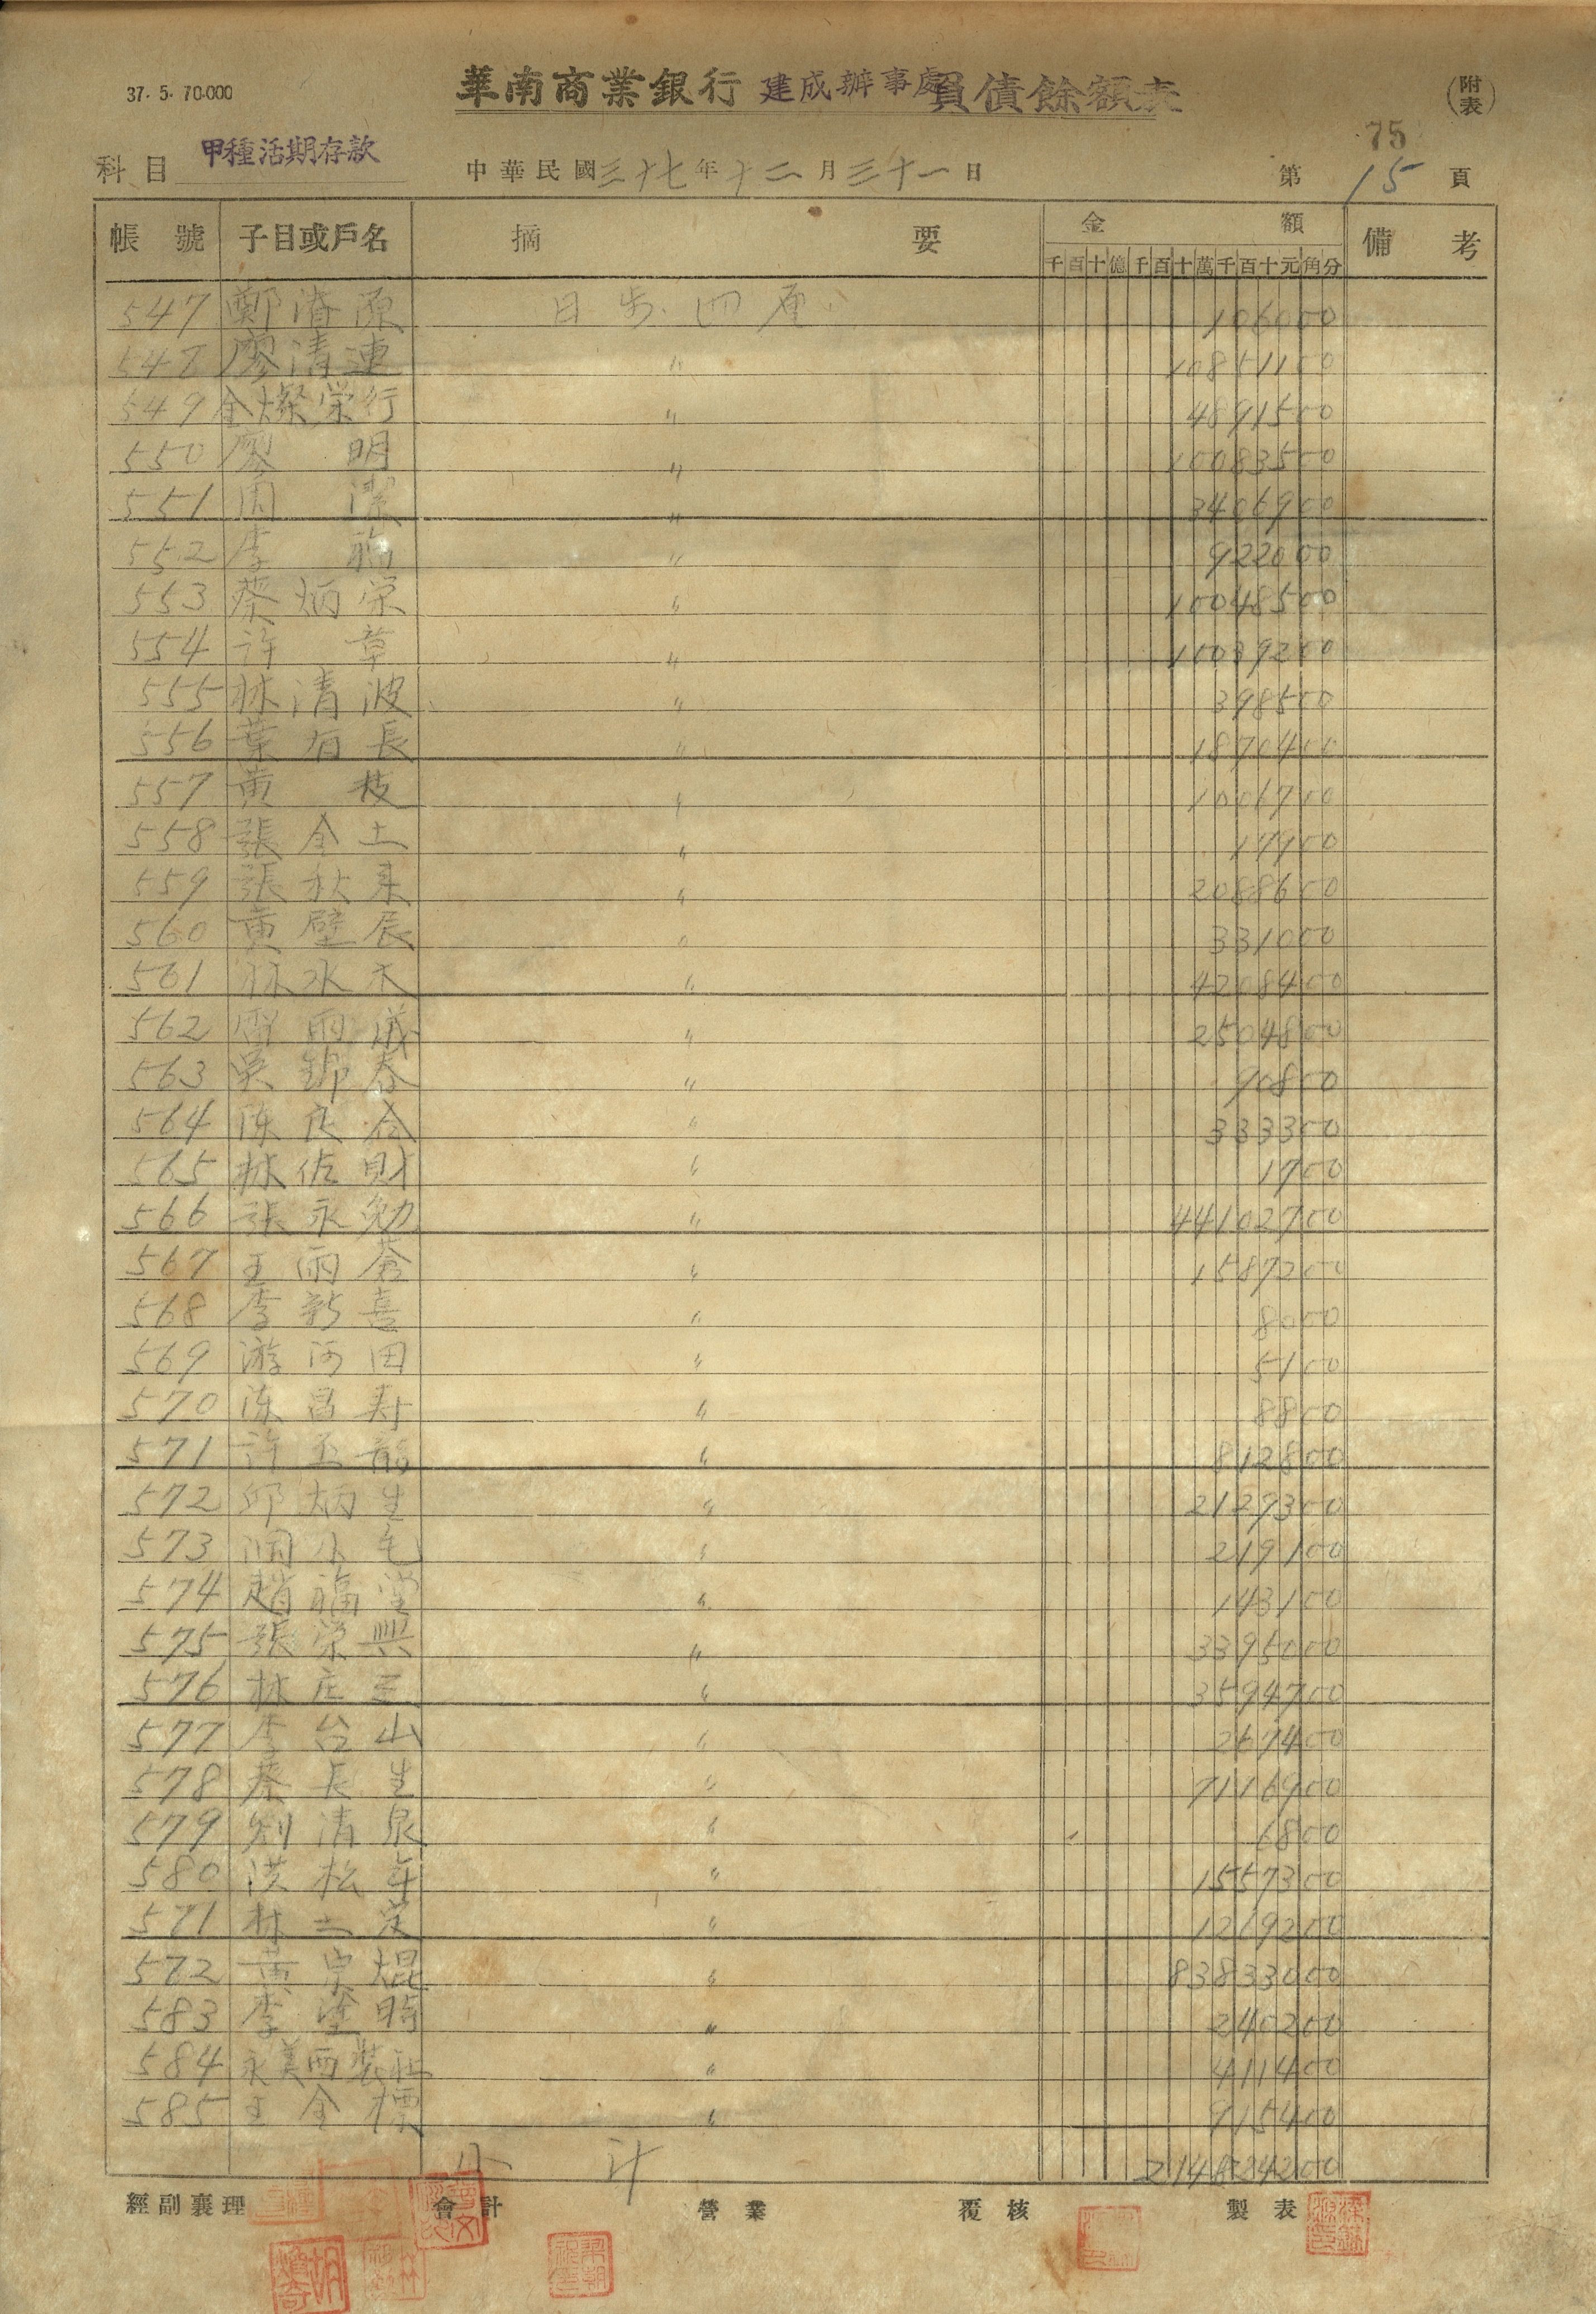 37.5.70.000
華南商業銀行 建成辦事處 負債餘額表
(附表)
75
科目 甲種活期存款 中華民國三十七年十二月三十一日 第15頁
帳號 子目或戶名 摘要 金額 備考
千百十億千百十萬千百十元角分
547 鄭 源 日步四厘 106000
548 廖清連 〃 10851100
549 金燦栄行 〃 4891500
550 廖明 〃 10083500
551 周潔 〃 3406900
552 李福 〃 922000
553 蔡炳栄 〃 10048500
554 許章 〃 11039200
555 林清波 〃 398500
556 葉有長 〃 1870400
557 黄枝 〃 1006700
558 張金土 〃 19900
559 張秋来 〃 2088600
560 黄壁辰 〃 331000
561 林水木 〃 4208400
562 雨 〃 2504800
563 吳錦春 〃 90800
564 陳良 〃 333300
565 林佐財 〃 1900
566 張永勉 〃 44102700
567 王雨 〃 1587200
568 李新喜 〃 8000
569 游阿田 〃 5100
570 陳昌寿 〃 8800
571 許玉龍 〃 812800
572 邱炳生 〃 2129300
573 小毛 〃 219100
574 趙福堂 〃 143100
575 張栄興 〃 3395000
576 林庄 〃 3594700
577 李台山 〃 267400
578 蔡長生 〃 7116900
579 劉清泉 〃 6800
580 洪松年 〃 1557300
581 林土 〃 1219200
582 黄宗焜 〃 83833000
583 李塗 〃 240200
584 永美西裝社 〃 411400
585 王金標 〃 915400
小計 214824200
經副襄理 會計 營業 覆核 製表